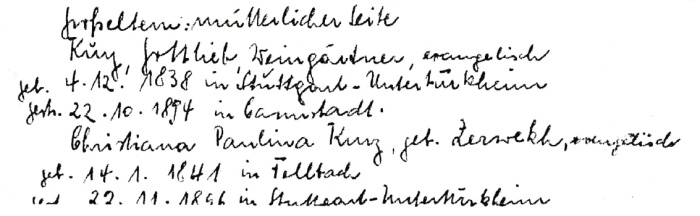 Großeltern: mütterlicher Seite
Kurz, Gottlieb, Weingärtner, evangelisch
geb. 4.12. 1838 in Stuttgart-Untertürkheim
gest. 22.10.1894 in Cannstadt.
Christiana Paulina Kurz, geb. Zerwekh, evangelisch
geb. 14.1. 1841 in Fellbach
gest. 22.11.1896 in Stuttgart-Untertürkheim